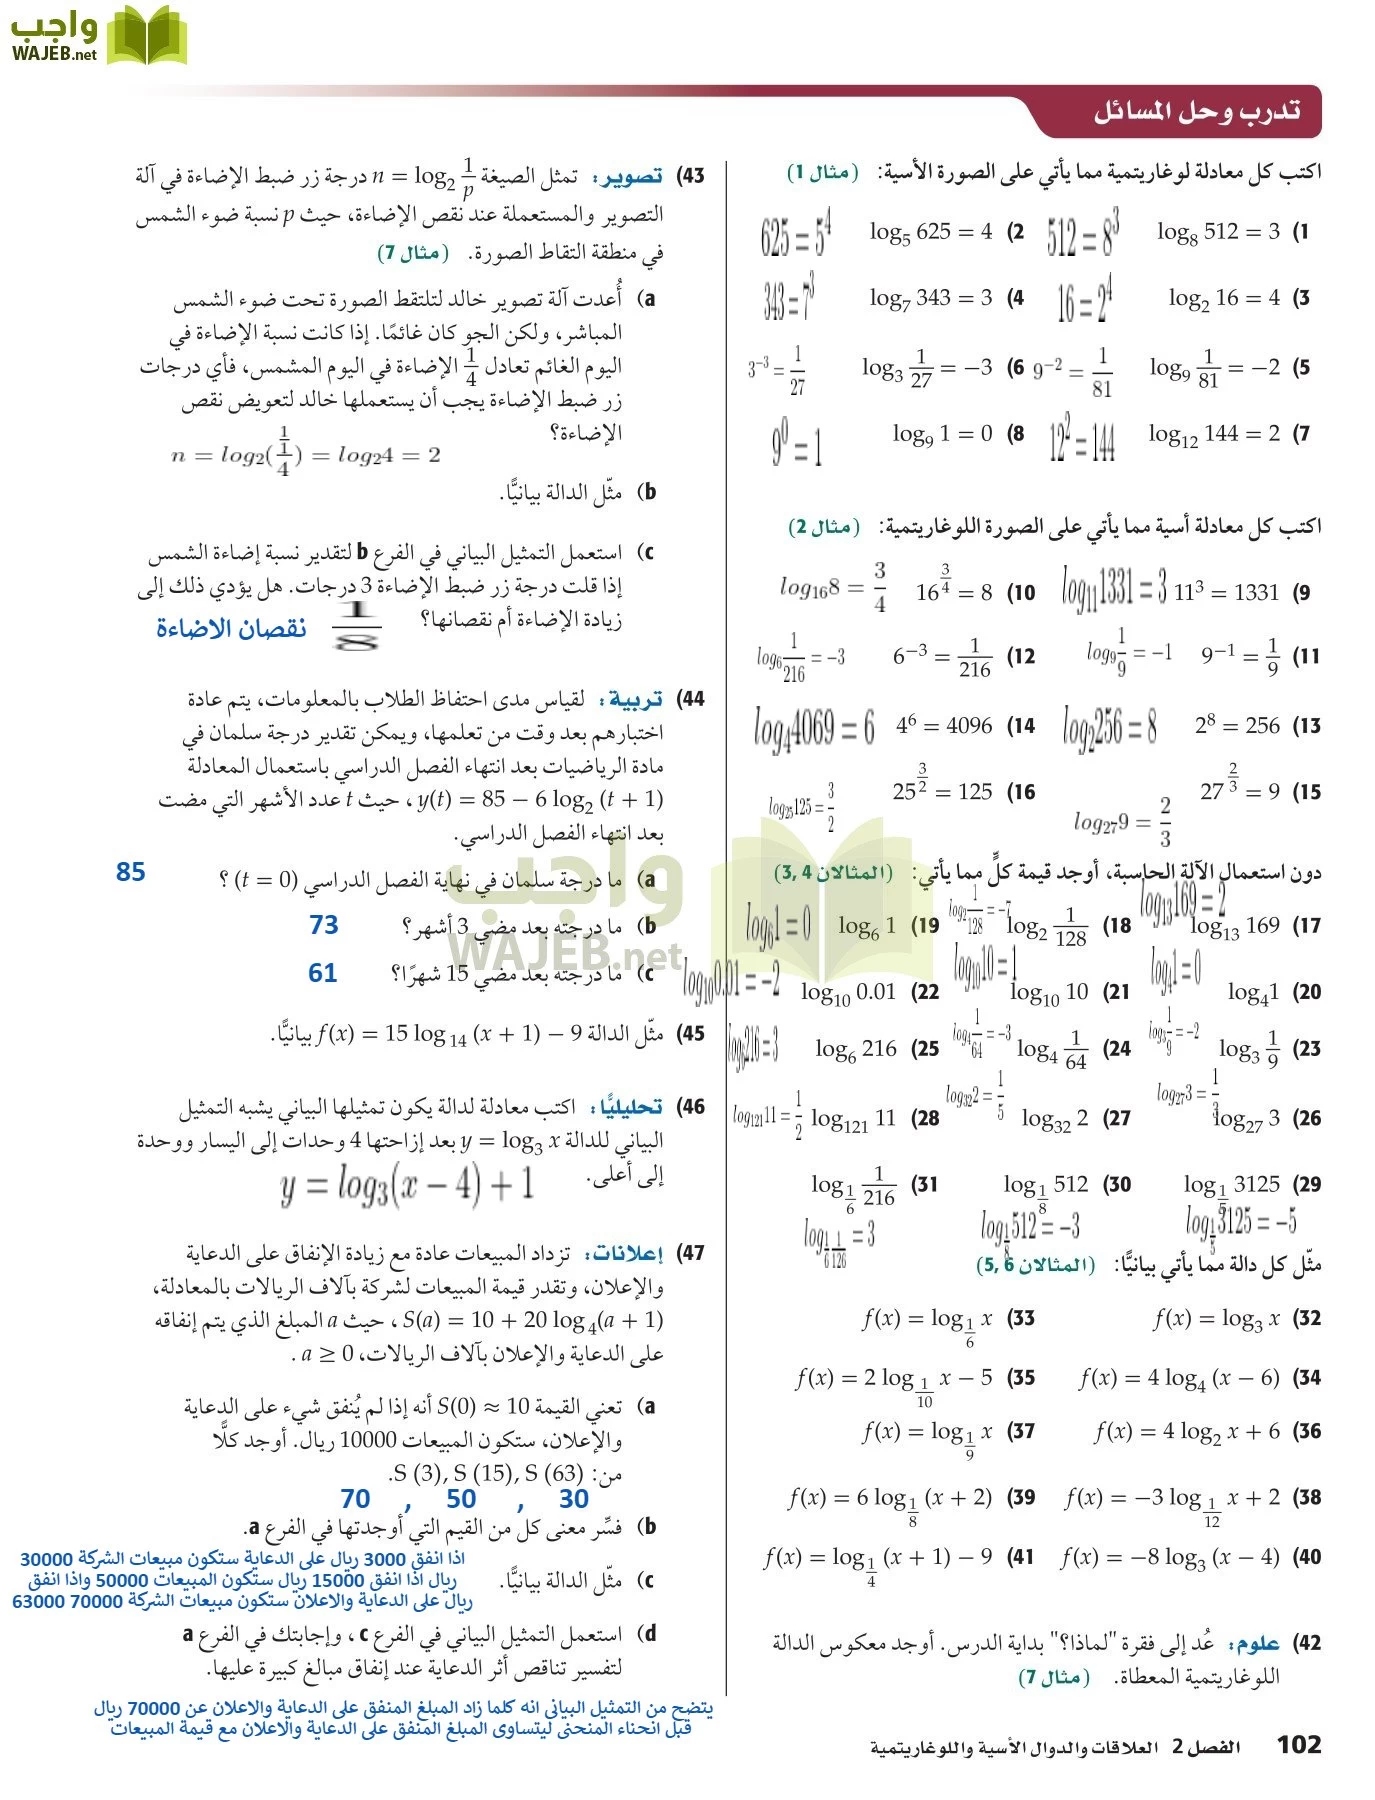 واجب
WAJEB.net
تدرب وحل المسائل
اكتب كل معادلة لوغاريتمية مما يأتي على الصورة الأسية: (مثال 1)
1) log₈ 512 = 3 512 = 8³ 2) log₅ 625 = 4 625 = 5⁴
3) log₂ 16 = 4 16 = 2⁴ 4) log₇ 343 = 3 343 = 7³
5) log₉ 1/81 = −2 9⁻² = 1/81 6) log₃ 1/27 = −3 3⁻³ = 1/27
7) log₁₂ 144 = 2 12² = 144 8) log₉ 1 = 0 9⁰ = 1
اكتب كل معادلة أسية مما يأتي على الصورة اللوغاريتمية: (مثال 2)
9) 11³ = 1331 log₁₁1331 = 3 10) 16^(3/4) = 8 log₁₆8 = 3/4
11) 9⁻¹ = 1/9 log₉ 1/9 = −1 12) 6⁻³ = 1/216 log₆ 1/216 = −3
13) 2⁸ = 256 log₂256 = 8 14) 4⁶ = 4096 log₄4069 = 6
15) 27^(2/3) = 9 log₂₇9 = 2/3 16) 25^(3/2) = 125 log₂₅125 = 3/2
دون استعمال الآلة الحاسبة، أوجد قيمة كلٍّ مما يأتي: (المثالان 3, 4)
17) log₁₃ 169 log₁₃169 = 2 18) log₂ 1/128 log₂ 1/128 = −7 19) log₆ 1 log₆1 = 0
20) log₄1 log₄1 = 0 21) log₁₀ 10 log₁₀10 = 1 22) log₁₀ 0.01 log₁₀0.01 = −2
23) log₃ 1/9 log₃ 1/9 = −2 24) log₄ 1/64 log₄ 1/64 = −3 25) log₆ 216 log₆216 = 3
26) log₂₇ 3 log₂₇3 = 1/3 27) log₃₂ 2 log₃₂2 = 1/5 28) log₁₂₁ 11 log₁₂₁11 = 1/2
29) log_(1/5) 3125 30) log_(1/8) 512 31) log_(1/6) 1/216
log_(1/5) 3125 = −5 log_(1/8) 512 = −3 log_(1/6) 1/126 = 3
مثّل كل دالة مما يأتي بيانيًّا: (المثالان 5, 6)
32) f(x) = log₃ x 33) f(x) = log_(1/6) x
34) f(x) = 4 log₄ (x − 6) 35) f(x) = 2 log_(1/10) x − 5
36) f(x) = 4 log₂ x + 6 37) f(x) = log_(1/9) x
38) f(x) = −3 log_(1/12) x + 2 39) f(x) = 6 log_(1/8) (x + 2)
40) f(x) = −8 log₃ (x − 4) 41) f(x) = log_(1/4) (x + 1) − 9
42) علوم: عُد إلى فقرة "لماذا؟" بداية الدرس. أوجد معكوس الدالة
اللوغاريتمية المعطاة. (مثال 7)
43) تصوير: تمثل الصيغة n = log₂ 1/p درجة زر ضبط الإضاءة في آلة
التصوير والمستعملة عند نقص الإضاءة، حيث p نسبة ضوء الشمس
في منطقة التقاط الصورة. (مثال 7)
a) أُعدت آلة تصوير خالد لتلتقط الصورة تحت ضوء الشمس
المباشر، ولكن الجو كان غائمًا. إذا كانت نسبة الإضاءة في
اليوم الغائم تعادل 1/4 الإضاءة في اليوم المشمس، فأي درجات
زر ضبط الإضاءة يجب أن يستعملها خالد لتعويض نقص
الإضاءة؟
n = log₂(1/(1/4)) = log₂4 = 2
b) مثّل الدالة بيانيًّا.
c) استعمل التمثيل البياني في الفرع b لتقدير نسبة إضاءة الشمس
إذا قلت درجة زر ضبط الإضاءة 3 درجات. هل يؤدي ذلك إلى
زيادة الإضاءة أم نقصانها؟ 1/8 نقصان الاضاءة
44) تربية: لقياس مدى احتفاظ الطلاب بالمعلومات، يتم عادة
اختبارهم بعد وقت من تعلمها، ويمكن تقدير درجة سلمان في
مادة الرياضيات بعد انتهاء الفصل الدراسي باستعمال المعادلة
y(t) = 85 − 6 log₂ (t + 1) ، حيث t عدد الأشهر التي مضت
بعد انتهاء الفصل الدراسي.
a) ما درجة سلمان في نهاية الفصل الدراسي (t = 0) ؟ 85
b) ما درجته بعد مضي 3 أشهر؟ 73
c) ما درجته بعد مضي 15 شهرًا؟ 61
واجب
WAJEB.net
45) مثّل الدالة f(x) = 15 log₁₄ (x + 1) − 9 بيانيًّا.
46) تحليليًّا: اكتب معادلة لدالة يكون تمثيلها البياني يشبه التمثيل
البياني للدالة y = log₃ x بعد إزاحتها 4 وحدات إلى اليسار ووحدة
إلى أعلى. y = log₃(x − 4) + 1
47) إعلانات: تزداد المبيعات عادة مع زيادة الإنفاق على الدعاية
والإعلان، وتقدر قيمة المبيعات لشركة بآلاف الريالات بالمعادلة،
S(a) = 10 + 20 log₄(a + 1) ، حيث a المبلغ الذي يتم إنفاقه
على الدعاية والإعلان بآلاف الريالات، a ≥ 0 .
a) تعني القيمة S(0) ≈ 10 أنه إذا لم يُنفق شيء على الدعاية
والإعلان، ستكون المبيعات 10000 ريال. أوجد كلًّا
من: S (3), S (15), S (63).
70 , 50 , 30
b) فسِّر معنى كل من القيم التي أوجدتها في الفرع a.
اذا انفق 3000 ريال على الدعاية ستكون مبيعات الشركة 30000
c) مثّل الدالة بيانيًّا. ريال اذا انفق 15000 ريال ستكون المبيعات 50000 واذا انفق
ريال على الدعاية والاعلان ستكون مبيعات الشركة 70000 63000
d) استعمل التمثيل البياني في الفرع c ، وإجابتك في الفرع a
لتفسير تناقص أثر الدعاية عند إنفاق مبالغ كبيرة عليها.
يتضح من التمثيل البياني انه كلما زاد المبلغ المنفق على الدعاية والاعلان عن 70000 ريال
قبل انحناء المنحنى ليتساوى المبلغ المنفق على الدعاية والاعلان مع قيمة المبيعات
102 الفصل 2 العلاقات والدوال الأسية واللوغاريتمية